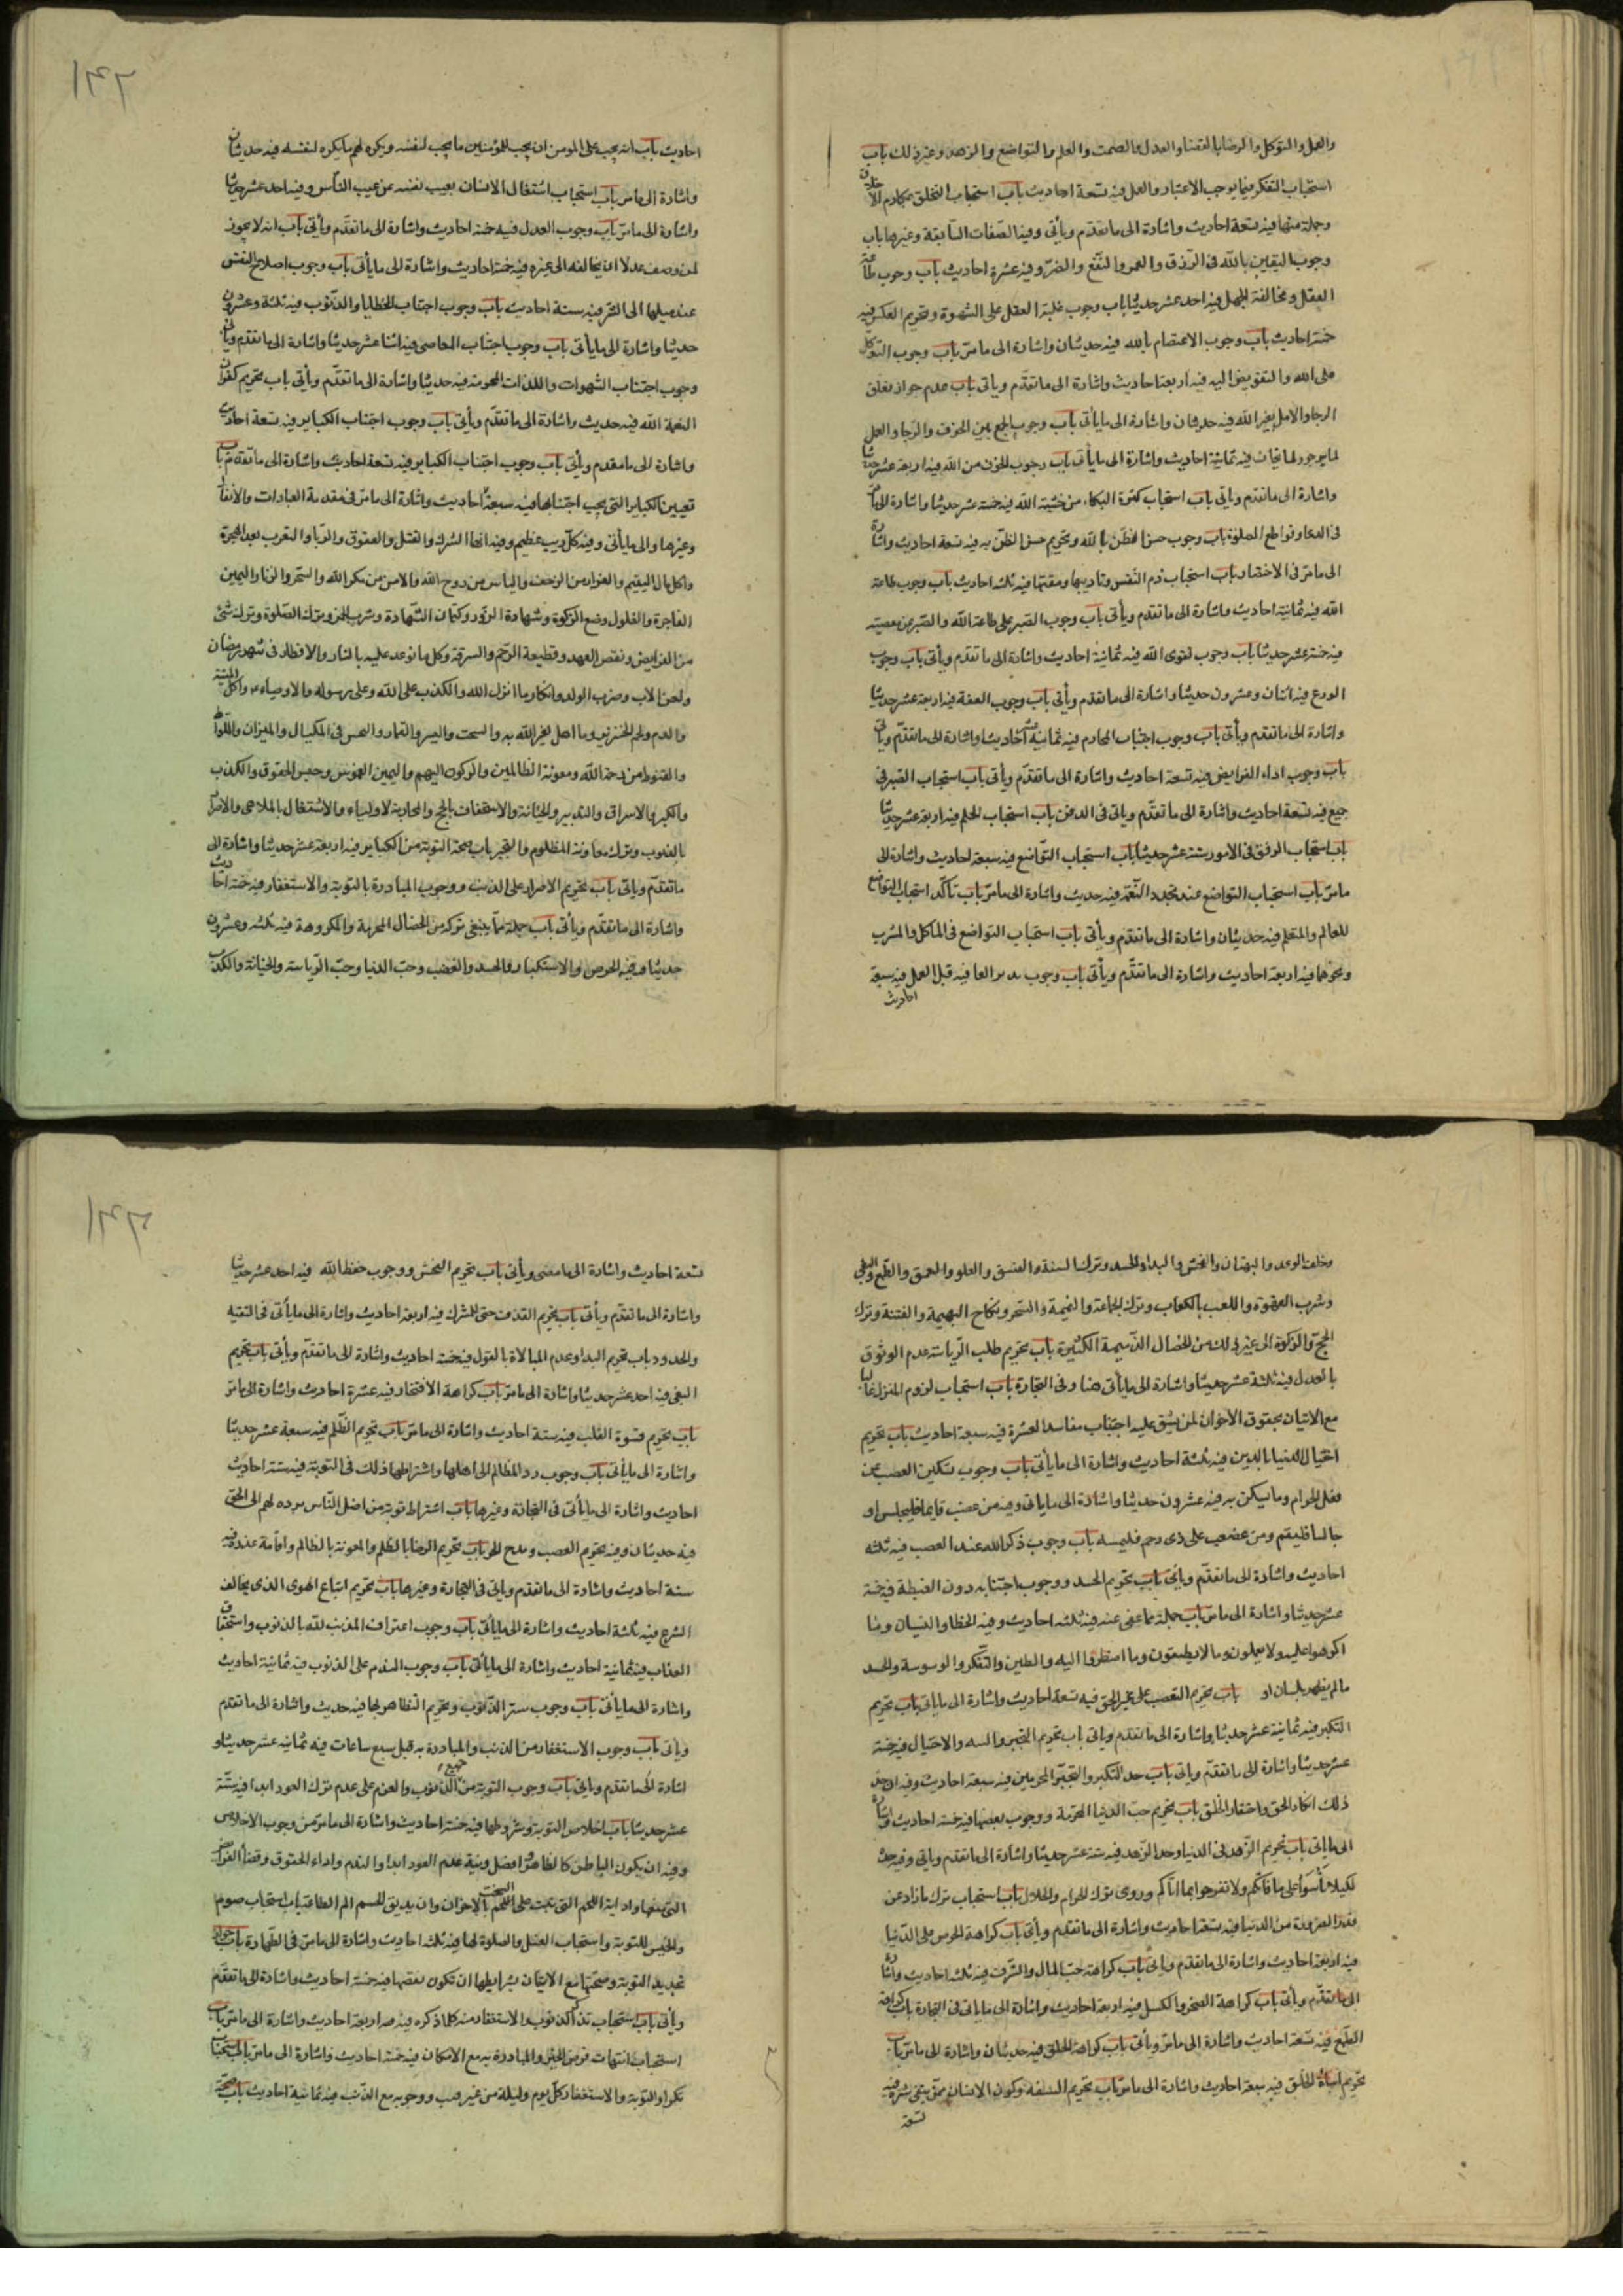 والعمل والتوكل والرضا بالقضا والعدل والصمت والعلم والتواضع والزهد وغير ذلك باب
استحباب التفكر فيما يوجب الاعتبار والعمل فيه تسعة احاديث باب استحباب التخلق بمكارم الاخلاق
وجملة منها فيه تسعة احاديث واشارة الى ما تقدم ويأتى وفيه الصفات السابقة وغيرها باب
وجوب اليقين بالله فى الرزق والعمر والنفع والضر وفيه عشرة احاديث باب وجوب طاعة
العقل ومخالفة الجهل فيه احد عشر حديثا باب وجوب غلبة العقل على الشهوة وتحريم العكس فيه
خمسة احاديث باب وجوب الاعتصام بالله فيه حديثان واشارة الى ما مرّ باب وجوب التوكل
على الله والتفويض اليه فيه اربعة احاديث واشارة الى ما تقدم ويأتى باب عدم جواز تعلق
الرجا والامل بغير الله فيه حديثان واشارة الى ما يأتى باب وجوب الجمع بين الخوف والرجا والعمل
لما يرجو ولما يخاف فيه ثمانية احاديث واشارة الى ما يأتى باب وجوب الخوف من الله فيه اربعة عشر حديثا
واشارة الى ما تقدم ويأتى باب استحباب كثرة البكاء من خشية الله فيه خمسة عشر حديثا واشارة الى ما مر
فى الدعا وقواطع الصلوة باب وجوب حسن الظن بالله وتحريم سوء الظن به فيه تسعة احاديث واشارة
الى ما مرّ فى الاحتضار باب استحباب ذم النفس وتاديبها ومقتها فيه ثلثة احاديث باب وجوب طاعة
الله فيه ثمانية احاديث واشارة الى ما تقدم ويأتى باب وجوب الصبر على طاعة الله والصبر عن معصيته
فيه خمسة عشر حديثا باب وجوب تقوى الله فيه ثمانية احاديث واشارة الى ما تقدم ويأتى باب وجوب
الورع فيه اثنان وعشرون حديثا واشارة الى ما تقدم ويأتى باب وجوب العفة فيه اربعة عشر حديثا
واشارة الى ما تقدم ويأتى باب وجوب اجتناب المحارم فيه ثمانية احاديث واشارة الى ما تقدّم ويأتى
باب وجوب اداء الفرايض فيه تسعة احاديث واشارة الى ما تقدّم ويأتى باب استحباب الصبر فى
جميع فيه تسعة احاديث واشارة الى ما تقدّم وياتى فى الدفن باب استحباب الحلم فيه اربعة عشر حديثا
باب استحباب الرفق فى الامور ستة عشر حديثا باب استحباب التواضع فيه سبعة احاديث واشارة الى
ما مرّ باب استحباب التواضع عند تجدد النعمة فيه حديث واشارة الى ما مرّ باب تأكد استحباب التواضع
للعالم والمتعلم فيه حديثان واشارة الى ما تقدم ويأتى باب استحباب التواضع فى الماكل والمشرب
ونحوهما فيه اربعة احاديث واشارة الى ما تقدّم ويأتى باب وجوب تدبر العاقبة قبل العمل فيه سبعة
احاديث
١٣٦
احاديث باب انه يجب على المؤمن ان يحب للمؤمنين ما يحب لنفسه ويكره لهم ما يكره لنفسه فيه حديثان
واشارة الى ما مر باب استحباب اشتغال الانسان بعيب نفسه عن عيب الناس وفيه احد عشر حديثا
واشارة الى ما مرّ باب وجوب العدل فيه خمسة احاديث واشارة الى ما تقدّم ويأتى باب انه لا يجوز
لمن وصف عدلا ان يخالفه الى غيره فيه خمسة احاديث واشارة الى ما يأتى باب وجوب اصلاح النفس
عند ميلها الى الشر فيه ستة احاديث باب وجوب اجتناب الخطايا والذنوب فيه ثلثة وعشرون
حديثا واشارة الى ما يأتى باب وجوب اجتناب المعاصى فيه اثنا عشر حديثا واشارة الى ما تقدّم ويأتى باب
وجوب اجتناب الشهوات واللذات المحرمة فيه حديثا واشارة الى ما تقدّم ويأتى باب تحريم كفران
النعمة الله فيه حديث واشارة الى ما تقدّم ويأتى باب وجوب اجتناب الكباير فيه تسعة احاديث
واشارة الى ما تقدم ويأتى باب وجوب اجتناب الكباير فيه تسعة احاديث واشارة الى ما تقدّم باب
تعيين الكباير التى يجب اجتنابها فيه سبعة احاديث واشارة الى ما مرّ فى مقدمة العبادات والانفال
وغيرها والى ما يأتى وفيه كل ذنب عظيم وفيه انها الشرك والقتل والعقوق والربا والتعرب بعد الهجرة
واكل مال اليتيم والفرار من الزحف والياس من روح الله والامن من مكر الله والسحر والزنا واليمين
الفاجرة والغلول ومنع الزكوة وشهادة الزور وكتمان الشهادة وشرب الخمر وترك الصلوة وترك شئ
من الفرايض ونقض العهد وقطيعة الرحم والسرقة وكل ما توعد عليه بالنار والافطار فى شهر رمضان
ولعن الاب وضرب الولد وانكار ما انزل الله والكذب على الله وعلى رسوله والاوصياء واكل الميتة
والدم ولحم الخنزير وما اهل لغير الله به والسحت والميسر والقمار والبخس فى المكيال والميزان واللواط
والقنوط من رحمة الله ومعونة الظالمين والركون اليهم واليمين الغموس وحبس الحقوق والكذب
والكبر والاسراف والتبذير والخيانة والاستخفاف بالحج والمحاربة لاولياء والاشتغال بالملاهى والاصرار
بالذنوب وترك معاونة المظلوم باب صحة التوبة من الكباير فيه اربعة عشر حديثا واشارة الى
ما تقدّم وياتى باب تحريم الاصرار على الذنب ووجوب المبادرة بالتوبة والاستغفار فيه خمسة احاديث
واشارة الى ما تقدّم ويأتى باب جملة مما ينبغى تركه من الخصال المحرمة والمكروهة فيه ثلثة وعشرون
حديثا وفيه الحرص والاستكبار والحسد والغضب وحبّ الدنيا وحبّ الرياسة والخيانة والكذب
وخلف الوعد والبهتان والفحش والبذاء والحسد وترك السنة والفسق والغلو والتعمق والطمع والبغى
وشرب القهوة واللعب بالكعاب وترك الجماعة والنميمة والسحر ونكاح البهيمة والفتنة وترك
الحج والزكوة الى غير ذلك من الخصال الذميمة الكثيرة باب تحريم طلب الرياسة عدم الوثوق
بالعدل فيه ثلثة عشر حديثا واشارة الى ما يأتى هنا وفى التجارة باب استحباب لزوم المنزل غالبا
مع الاتيان بحقوق الاخوان لمن يشق عليه اجتناب مفاسد العشرة فيه سبعة احاديث باب تحريم
اختيال الدنيا بالدين فيه ثلثة احاديث واشارة الى ما يأتى باب وجوب تسكين الغضب عن
فعل الحرام وما يسكن به فيه عشرون حديثا واشارة الى ما يأتى وفيه من غضب قايما فليجلس او
جالسا فليقم ومن غضب على ذى رحم فليمسه باب وجوب ذكر الله عند الغضب فيه ثلثة
احاديث واشارة الى ما تقدّم ويأتى باب تحريم الحسد ووجوب اجتنابه دون الغبطة فيه خمسة
عشر حديثا واشارة الى ما مرّ باب جملة مما عفى عنه فيه ثلثة احاديث وفيه الخطا والنسيان وما
اكرهوا عليه ولا يعلمون وما لا يطيقون وما اضطروا اليه والطيرة والتفكر والوسوسة والحسد
ما لم يظهر بلسان او باب تحريم التعصب على غير الحق فيه تسعة احاديث واشارة الى ما يأتى باب تحريم
التكبر فيه ثمانية عشر حديثا واشارة الى ما تقدم وياتى باب تحريم التجبر والتيه والاختيال فيه خمسة
عشر حديثا واشارة الى ما تقدّم وياتى باب حد التكبر والتجبر المحرمين فيه سبعة احاديث وفيه ان حد
ذلك انكار الحق واحتقار الخلق باب تحريم حبّ الدنيا المحرّمة ووجوب بغضها فيه خمسة احاديث واشارة
الى ما ياتى باب تحريم الزهد فى الدنيا وحد الزهد فيه ستة عشر حديثا واشارة الى ما تقدم وياتى وفيه حد
لكيلا تأسوا على ما فاتكم ولا تفرحوا بما اتاكم وروى ترك الحرام والحلال باب استحباب ترك ما زاد عن
قدر الضرورة من الدنيا فيه تسعة احاديث واشارة الى ما تقدّم ويأتى باب كراهة الحرص على الدنيا
فيه اربعة احاديث واشارة الى ما تقدم وياتى باب كراهة حبّ المال والشرف فيه ثلثة احاديث واشارة
الى ما تقدّم ويأتى باب كراهة الضجر والكسل فيه اربعة احاديث واشارة الى ما ياتى فى التجارة باب كراهة
الطمع فيه تسعة احاديث واشارة الى ما مرّ ويأتى باب كراهة الخلق فيه حديثان واشارة الى ما مرّ باب
تحريم اساءة الخلق فيه سبعة احاديث واشارة الى ما مرّ باب تحريم السفه وكون الانسان ممن يتقى شره فيه
تسعة
١٣٧
تسعة احاديث واشارة الى ما مضى ويأتى باب تحريم الفحش ووجوب حفظ الله فيه احد عشر حديثا
واشارة الى ما تقدّم ويأتى باب تحريم القذف حتى للمشرك فيه اربعة احاديث واشارة الى ما يأتى فى التقية
والحدود باب تحريم البذاء وعدم المبالاة بالقول فيه خمسة احاديث واشارة الى ما تقدّم ويأتى باب تحريم
البغى فيه احد عشر حديثا واشارة الى ما مرّ باب كراهة الافتخار فيه عشرة احاديث واشارة الى ما مرّ
باب تحريم قسوة القلب فيه ستة احاديث واشارة الى ما مرّ باب تحريم الظلم فيه سبعة عشر حديثا
واشارة الى ما يأتى باب وجوب رد المظالم الى اهلها واشتراطها ذلك فى التوبة فيه ستة احاديث
احاديث واشارة الى ما يأتى فى التجارة وغيرها باب اشتراط توبة من اضل الناس برده لهم الى الحق
فيه حديثان وفيه تحريم العصب ومدح للحر باب تحريم الرضا بالظلم والمعونة بالظالم واقامة عذره فيه
ستة احاديث واشارة الى ما تقدم وياتى فى التجارة وغيرها باب تحريم اتباع الهوى الذى يخالف
الشرع فيه ثلثة احاديث واشارة الى ما يأتى باب وجوب اعتراف المذنب لله بالذنوب واستحقاق
العذاب فيه ثمانية احاديث واشارة الى ما يأتى باب وجوب الندم على الذنوب فيه ثمانية احاديث
واشارة الى ما يأتى باب وجوب ستر الذنوب وتحريم التظاهر بها فيه حديث واشارة الى ما تقدم
ويأتى باب وجوب الاستغفار من الذنب والمبادرة به قبل سبع ساعات فيه ثمانية عشر حديثا و
اشارة الى ما تقدم وياتى باب وجوب التوبة من جميع الذنوب والعزم على عدم ترك العود ابدا فيه ستة
عشر حديثا باب اخلاص التوبة وشروطها فيه خمسة احاديث واشارة الى ما مرّ من وجوب الاخلاص
وفيه ان يكون الباطن كالظاهر وافضل ونية عدم العود ابدا والندم واداء الحقوق وقضا الفرائض
التى ضيعها واذابة اللحم التى نبت على السحت بالاحزان وان يذيق الجسم الم الطاعة باب استحباب صوم
والخميس للتوبة واستحباب الغسل والصلوة لها فيه ثلثة احاديث واشارة الى ما مرّ فى الطهارة باب جواز
تجديد التوبة وصحتها مع الاتيان بشرايطها ان تكون نقضها فيه خمسة احاديث واشارة الى ما تقدّم
ويأتى باب استحباب تذكر الذنوب والاستغفار منه كلما ذكره فيه اربعة احاديث واشارة الى ما مرّ باب
استحباب انتهات فرص الخير والمبادرة به مع الامكان فيه خمسة احاديث واشارة الى ما مرّ باب استحباب
تكرار التوبة والاستغفار كل يوم وليلة من غير ذنب ووجوبه مع الذنب فيه ثمانية احاديث باب صحة